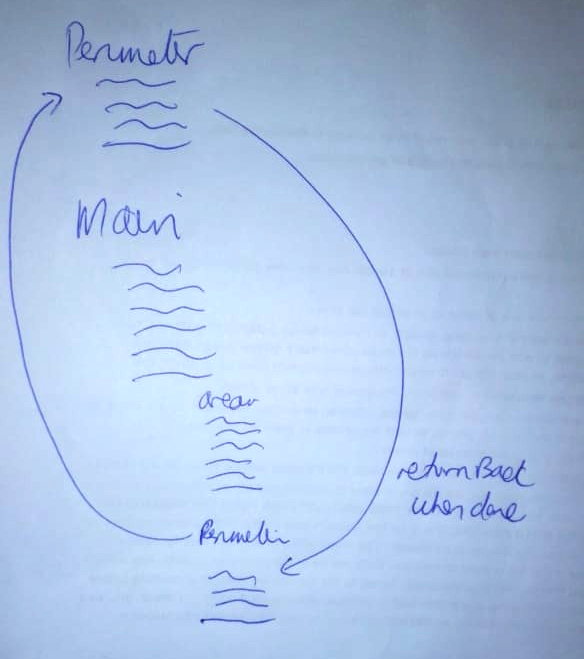 Perimeter
Main
area
Perimeter
return Back
when done